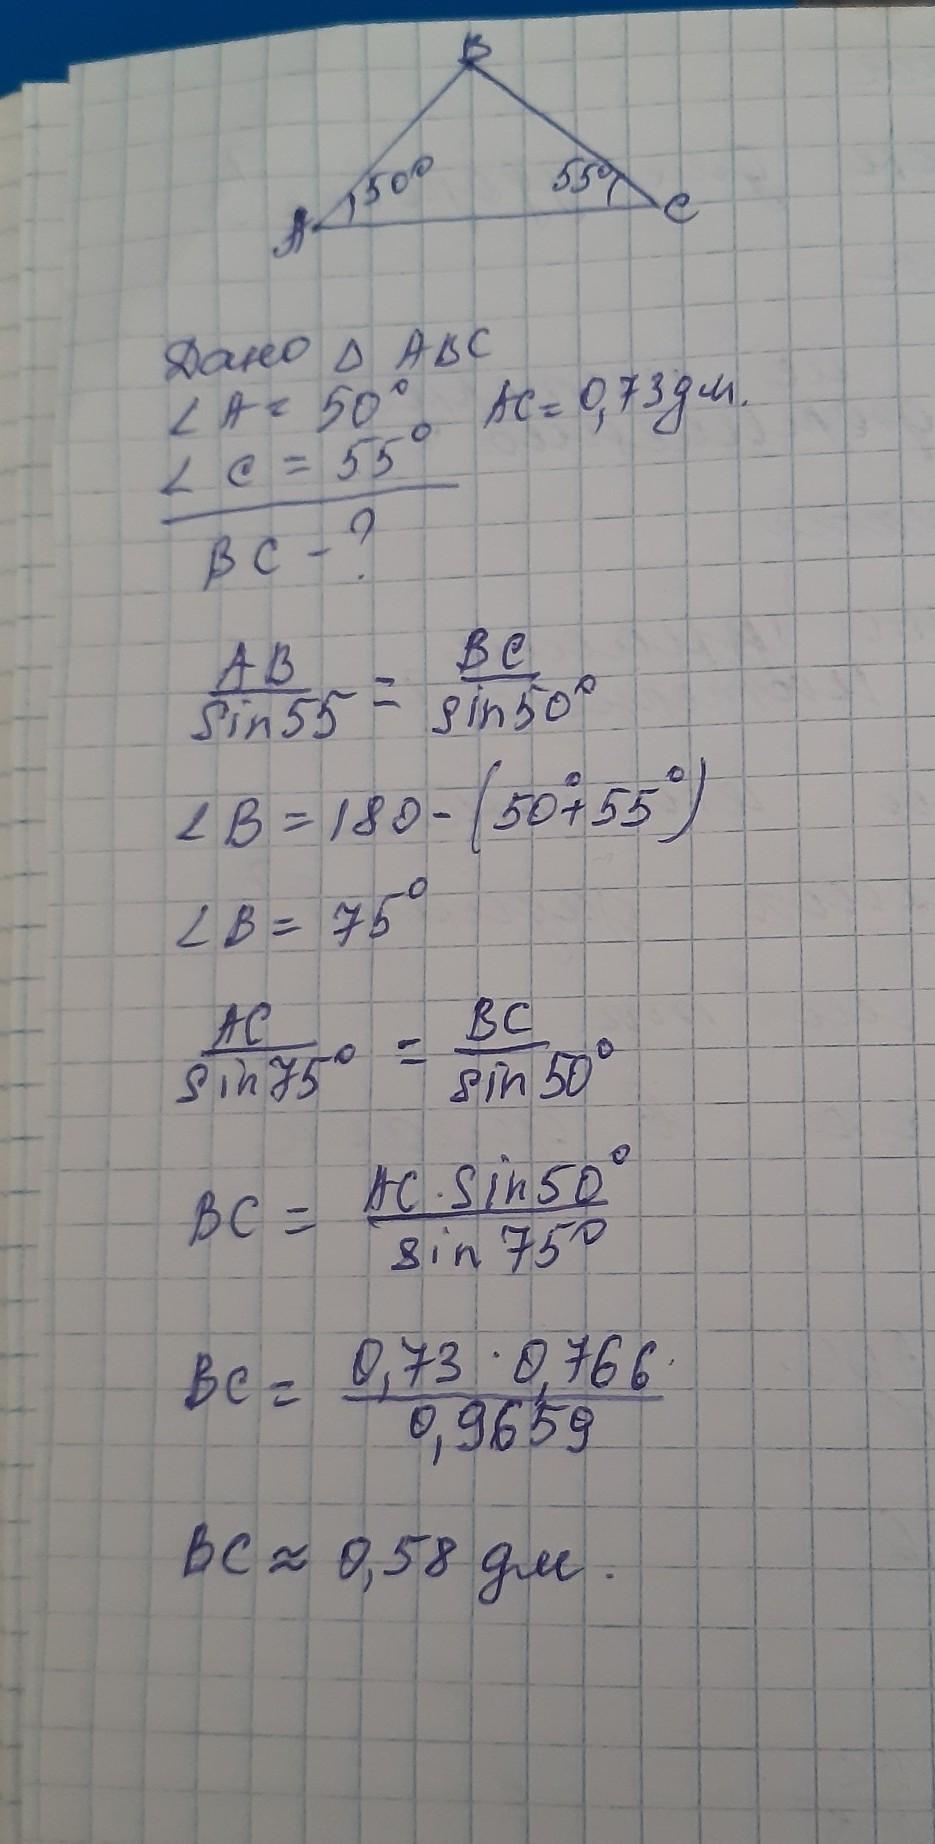 B
50° 55°
A C
Дано Δ ABC
∠A = 50° AC = 0,73 дм.
∠C = 55°
BC - ?
AB/sin55 = BC/sin50°
∠B = 180 - (50° + 55°)
∠B = 75°
AC/sin75° = BC/sin50°
BC = AC · sin50°/sin75°
BC = 0,73 · 0,766/0,9659
BC ≈ 0,58 дм.